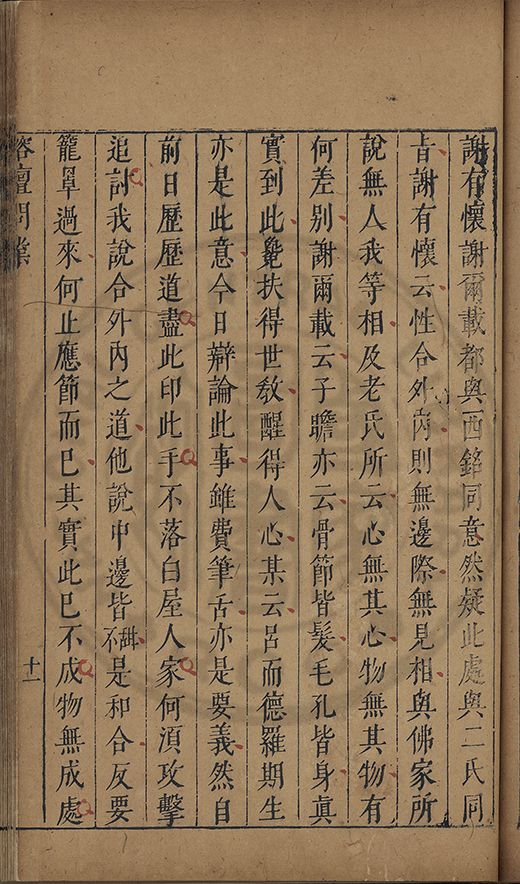 謝有懷謝爾載都與西銘同意然疑此處與二氏同
旨謝有懷云性合外內則無邊際無見相與佛家所
說無人我等相及老氏所云心無其心物無其物有
何差别謝爾載云子瞻亦云骨節皆髮毛孔皆身真
實到此毚扶得世敎醒得人心某云呂而德羅期生
亦是此意今日辯論此事雖費筆舌亦是要義然自
前日歷歷道盡此印此手不落白屋人家何湏攻擊
追討我說合外內之道他說中邊皆不甜是和合反要
籠罩過來何止應節而已其實此已不成物無成處
榕壇問業
十一